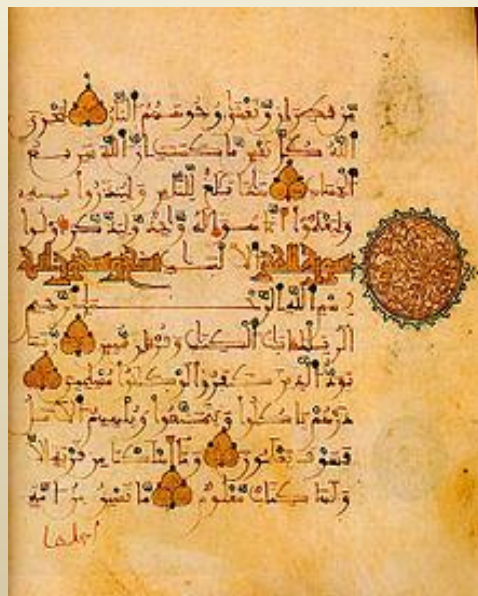 من قطران وتغشى وجوههم النار ليجزي
الله كل نفس ما كسبت ان الله سريع
الحساب هذا بلغ للناس ولينذروا به
وليعلموا انما هو اله واحد وليذكر اولوا
سورة الحجر الالباب
بسم الله الرحمن الرحيم
الر تلك ايت الكتب وقرءان مبين ربما
يود الذين كفروا لو كانوا مسلمين
ذرهم ياكلوا ويتمتعوا ويلههم الامل
فسوف يعلمون وما اهلكنا من قرية الا
ولها كتاب معلوم ما تسبق من امة
اجلها